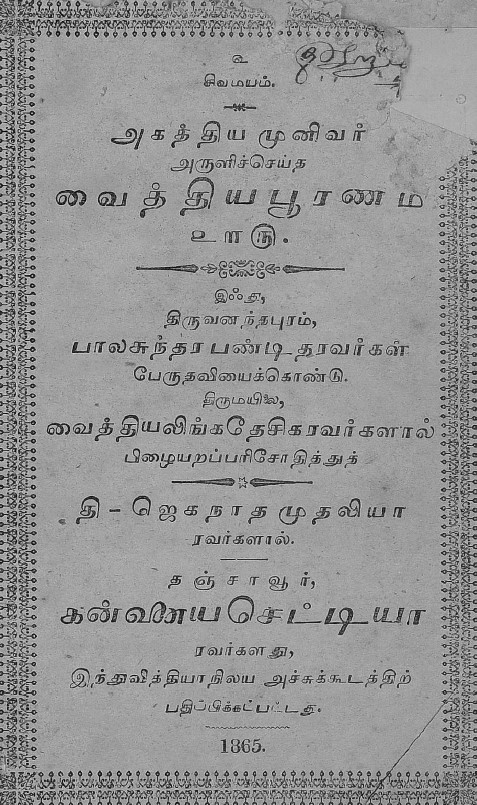 உ
சிவமயம்.
அகத்திய முனிவர்
அருளிச்செய்த
வைத்தியபூரணம
உாரு.
இஃது,
திருவனந்தபுரம்,
பாலசுந்தரபண்டிதரவர்கள்
பேருதவியைக்கொண்டு.
திருமயிலை,
வைத்தியலிங்கதேசிகரவர்களால்
பிழையறப்பரிசோதித்துத்
தி - ஜெகநாதமுதலியா
ரவர்களால்.
தஞ்சாவூர்,
ரவர்களது,
இந்துவித்தியாநிலய அச்சுக்கூடத்திற்
பதிப்பிக்கப்பட்டது.
1865.